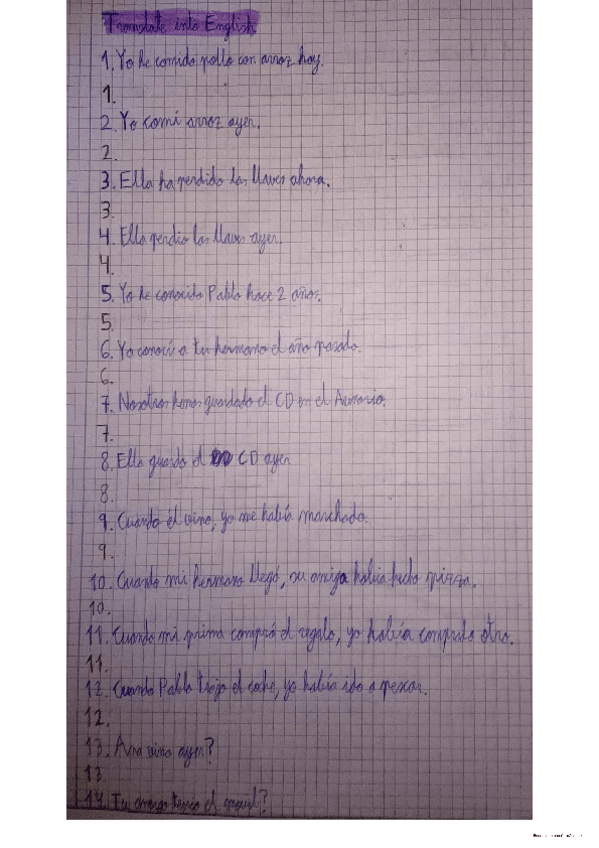 Translate into English
1. Yo he comido pollo con arroz hoy.
1.
2. Yo comí arroz ayer.
2.
3. Ella ha perdido las llaves ahora.
3.
4. Ella perdio las llaves ayer.
4.
5. Yo he conocido Pablo hace 2 años.
5.
6. Yo conocí a tu hermano el año pasado.
6.
7. Nosotros hemos guardado el CD en el Armario.
7.
8. Ella guardo el CD ayer
8.
9. Cuando él vino, yo me había marchado.
9.
10. Cuando mi hermano llegó, su amiga habia hecho pizza.
10.
11. Cuando mi prima compró el regalo, yo había comprado otro.
11.
12. Cuando Pablo trajo el coche, yo había ido a pescar.
12.
13. Ana vino ayer?
13
14. Tu amigo tenia el ?